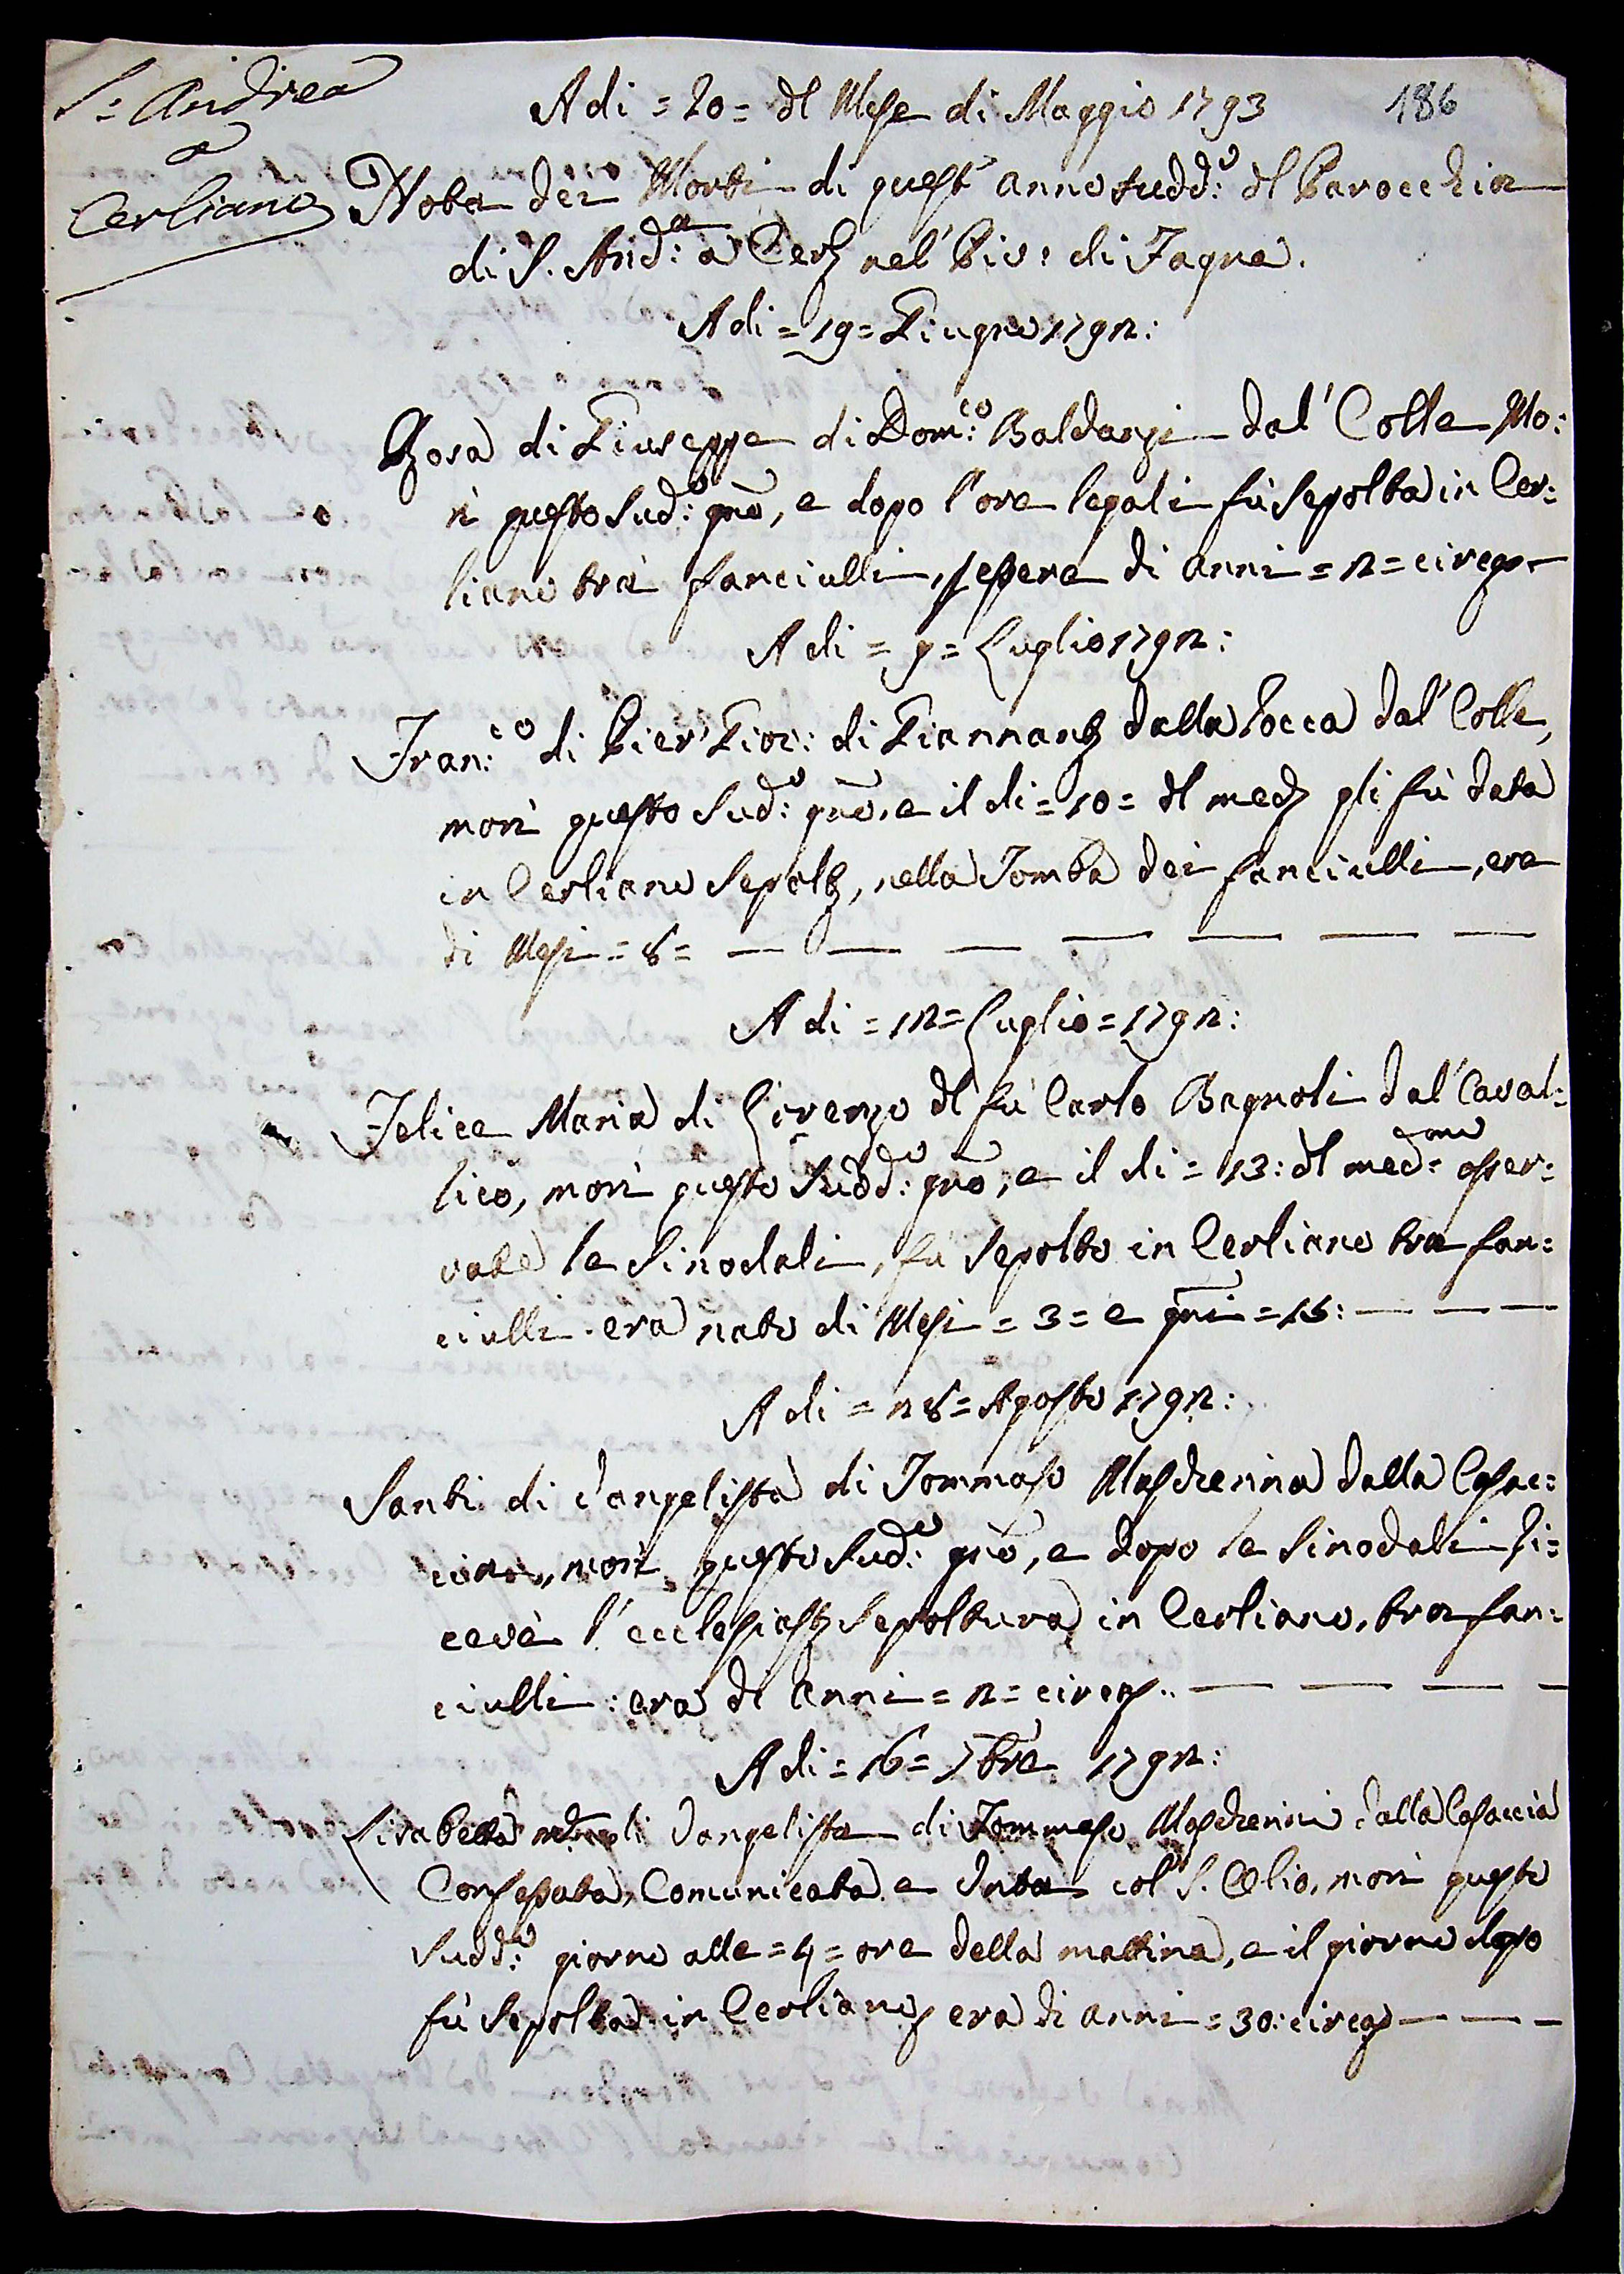 S: Andrea
a
Cerliano
186
A di = 20 = dl Mese di Maggio 1793
Nota dei Morti di quest' anno sudd:o dl Parocchia
di S. And:a a Cerl nel' Piv: di Fagna.
A di = 19 = Giugno 1792:
Rosa di Giuseppe di Dom:co Baldanzi dal' Colle Mo:
rì questo Sud:o gno, e dopo l'ore legali fù sepolta in Cer:
liano trà fanciulli, essere di anni = 2 = circa
A di = 9 = Luglio 1792:
Fran:co di Pier' Gio: di Giannant dalla Rocca dal' Colle,
morì questo Sud:o gno, e il di = 10 = dl med gli fù data
in Cerliano Sepolt, nella Tomba dei fanciulli, era
di Mesi = 8 =
A di = 12 = Luglio = 1792:
Felice Maria di Lorenzo dl fù Carlo Bagnoli dal' Caval:
lico, morì questo Sudd:o gno, e il di = 13: dl med:mo osser:
vate le Sinodali, fù sepolto in Cerliano tra fan:
ciulli. era nato di Mesi = 3 = e gni = 15:
A di = 28 = Agosto 1792:
Santi di Vangelista di Tommaso Mascherini dalla Casac:
cia, morì questo Sud:o gno, e dopo le Sinodali ri:
cevè l' ecclesiast Sepoltura in Cerliano, tra fan:
ciulli: era di anni = 2 = circa.
A di = 16 = 7bre 1792:
Lisabetta di Vangelista di Tommaso Mascherini dalla Casaccia
Confessata, Comunicata e Unta col' S. Olio, morì questo
Sudd:o giorno alle = 4 = ore della mattina, e il giorno dopo
fù sepolta in Cerliano, era di anni = 30: circa